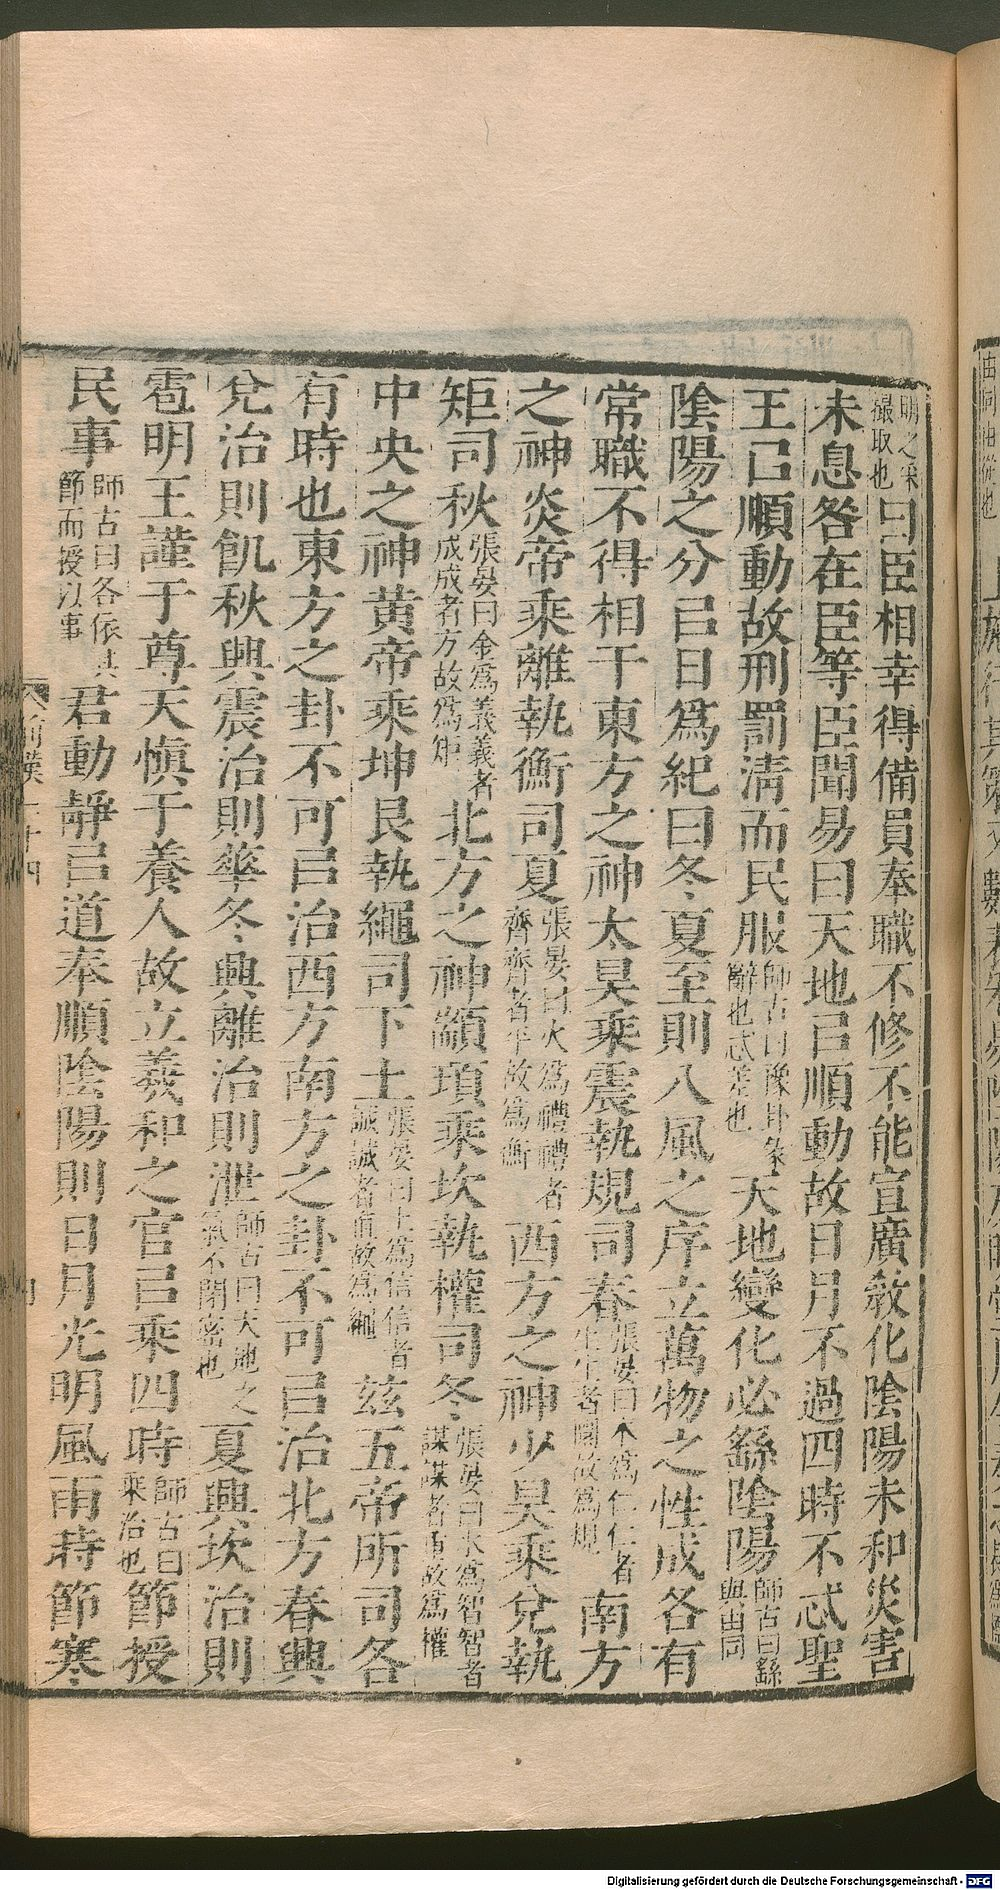 明之采撮取也曰臣相幸得備員奉職不修不能宣廣敎化陰陽未和災害
未息咎在臣等臣聞易曰天地㠯順動故日月不過四時不忒聖
王㠯順動故刑罰淸而民服師古曰豫卦彖辭也忒差也天地變化必繇陰陽師古曰繇與由同
陰陽之分㠯日爲紀日冬夏至則八風之序立萬物之性成各有
常職不得相干東方之神太昊乘震執規司春張晏曰木爲仁仁者生生者圜故爲規南方
之神炎帝乘離執衡司夏張晏曰火爲禮禮者齊齊者平故爲衡西方之神少昊乘兌執
矩司秋張晏曰金爲義義者成成者方故爲矩北方之神顓頊乘坎執權司冬張晏曰水爲智智者謀謀者重故爲權
中央之神黃帝乘坤艮執繩司下土張晏曰土爲信信者誠誠者直故爲繩茲五帝所司各
有時也東方之卦不可㠯治西方南方之卦不可㠯治北方春興
兌治則飢秋興震治則華冬興離治則泄師古曰天地之氣不閉密也夏興坎治則
雹明王謹于尊天愼于養人故立羲和之官㠯乘四時師古曰乘治也節授
民事師古曰各依其節而授以事君動靜㠯道奉順陰陽則日月光明風雨時節寒
前漢 七十四
Digitalisierung gefördert durch die Deutsche Forschungsgemeinschaft - DFG